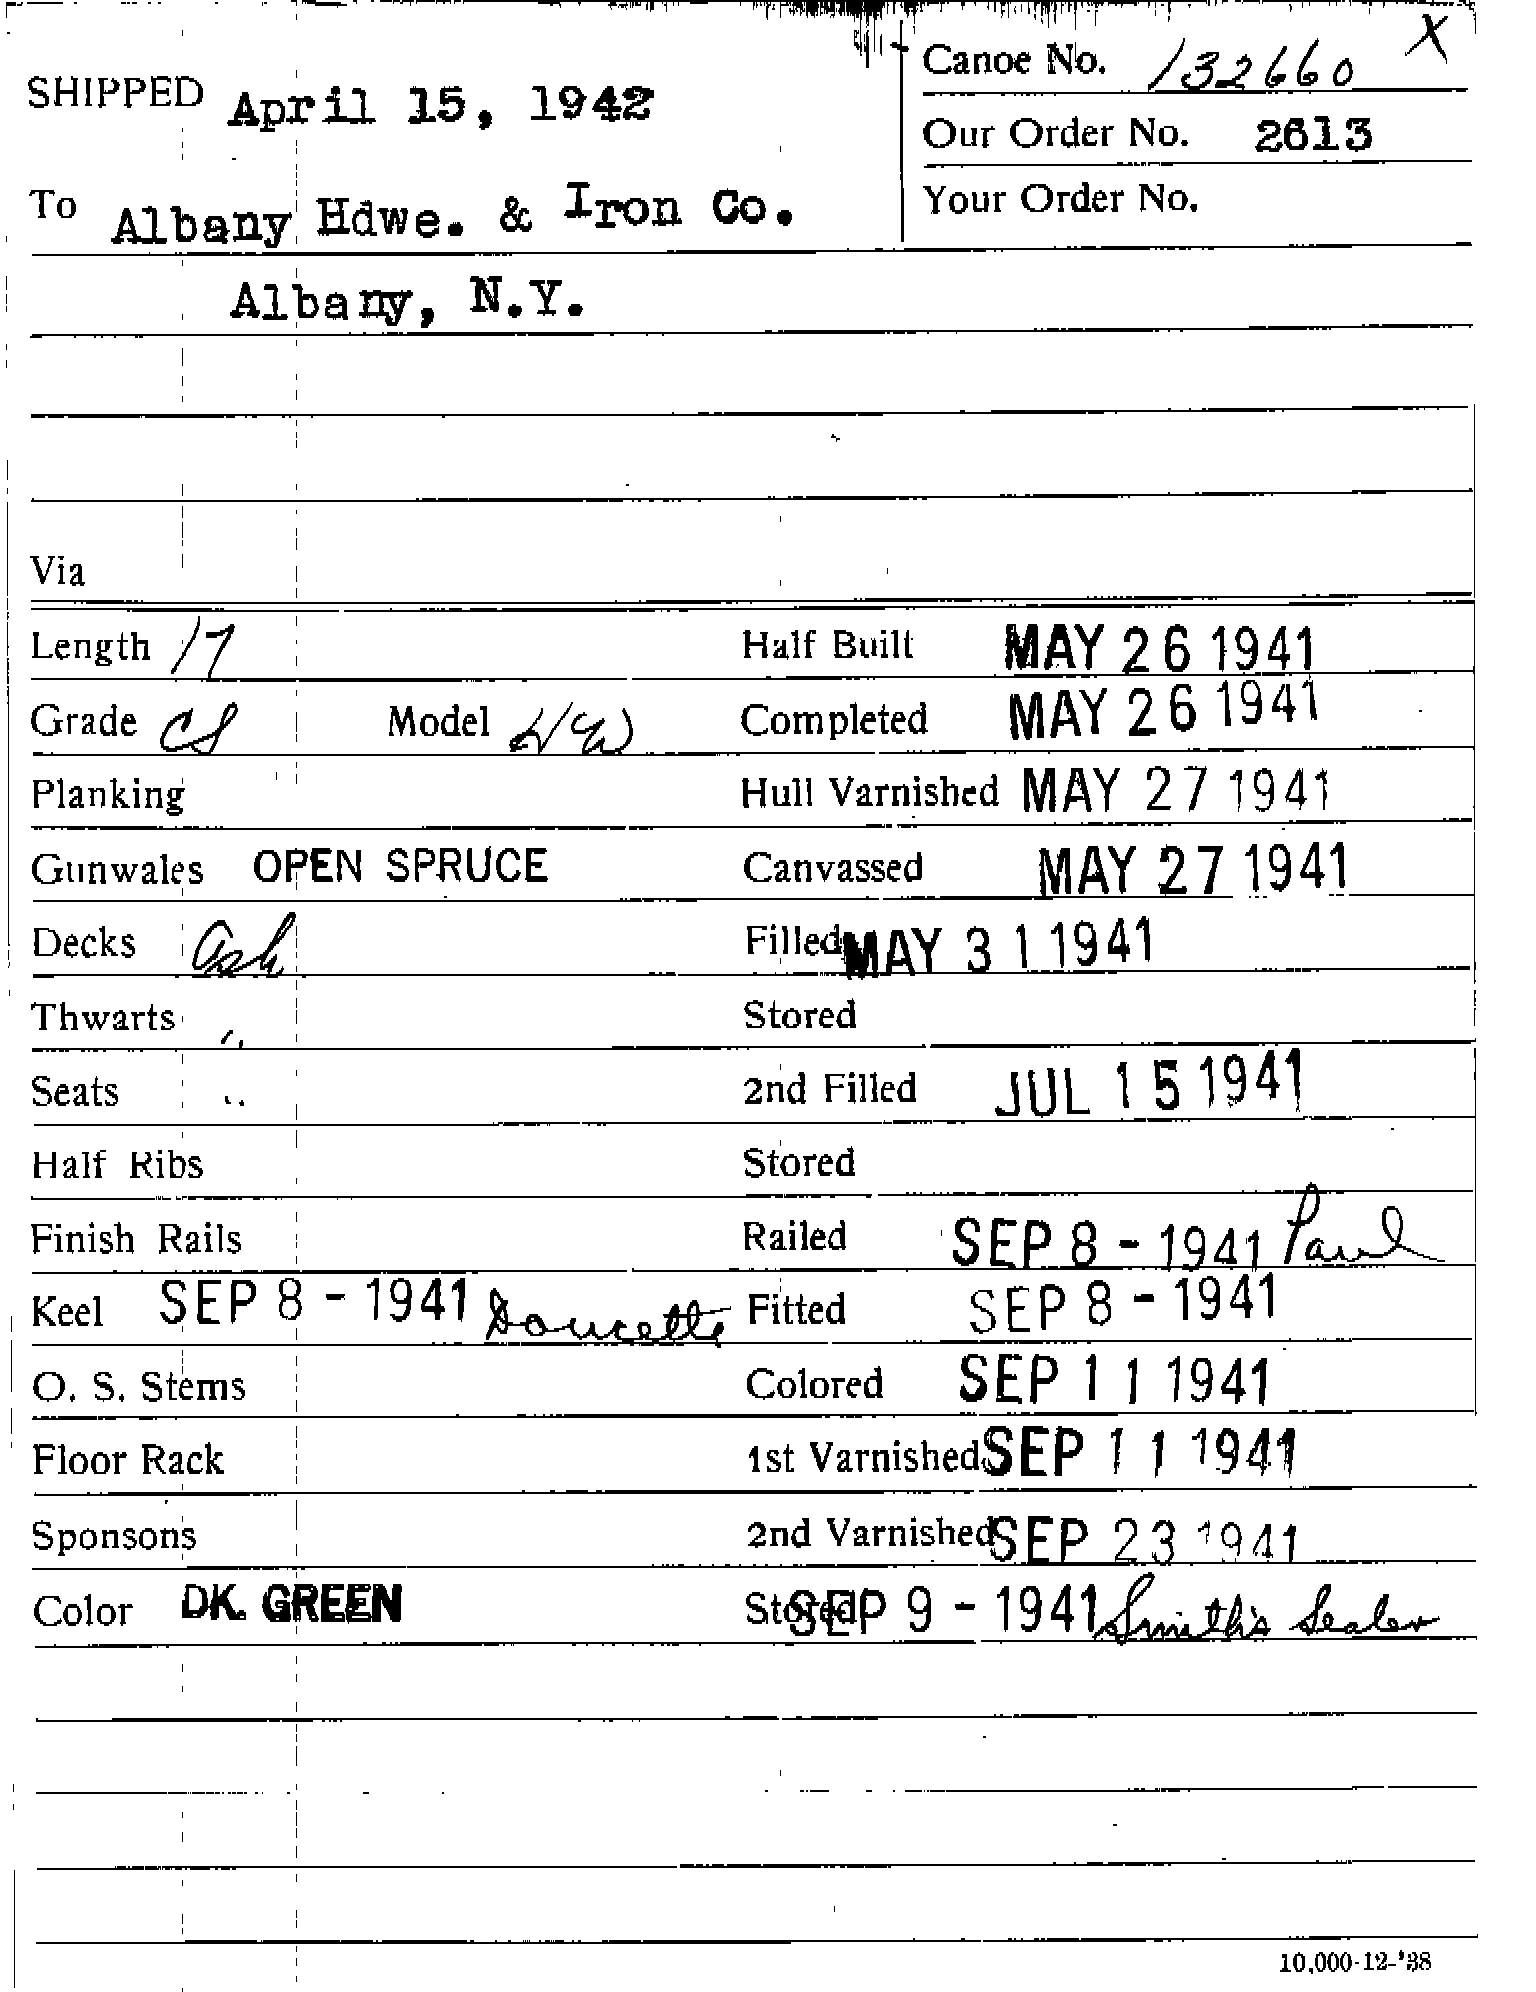 Canoe No. 132660 X
SHIPPED April 15, 1942
Our Order No. 2613
To Albany Hdwe. & Iron Co.
Your Order No.
Albany, N.Y.
Via
Length 17 Half Built MAY 26 1941
Grade CS Model HW Completed MAY 26 1941
Planking Hull Varnished MAY 27 1941
Gunwales OPEN SPRUCE Canvassed MAY 27 1941
Decks Ash Filled MAY 31 1941
Thwarts " Stored
Seats " 2nd Filled JUL 15 1941
Half Ribs Stored
Finish Rails Railed SEP 8 - 1941 Paul
Keel SEP 8 - 1941 Doucette Fitted SEP 8 - 1941
O. S. Stems Colored SEP 11 1941
Floor Rack 1st Varnished SEP 11 1941
Sponsons 2nd Varnished SEP 23 1941
Color DK. GREEN Stored SEP 9 - 1941 Smith's Sealer
10,000-12-'38